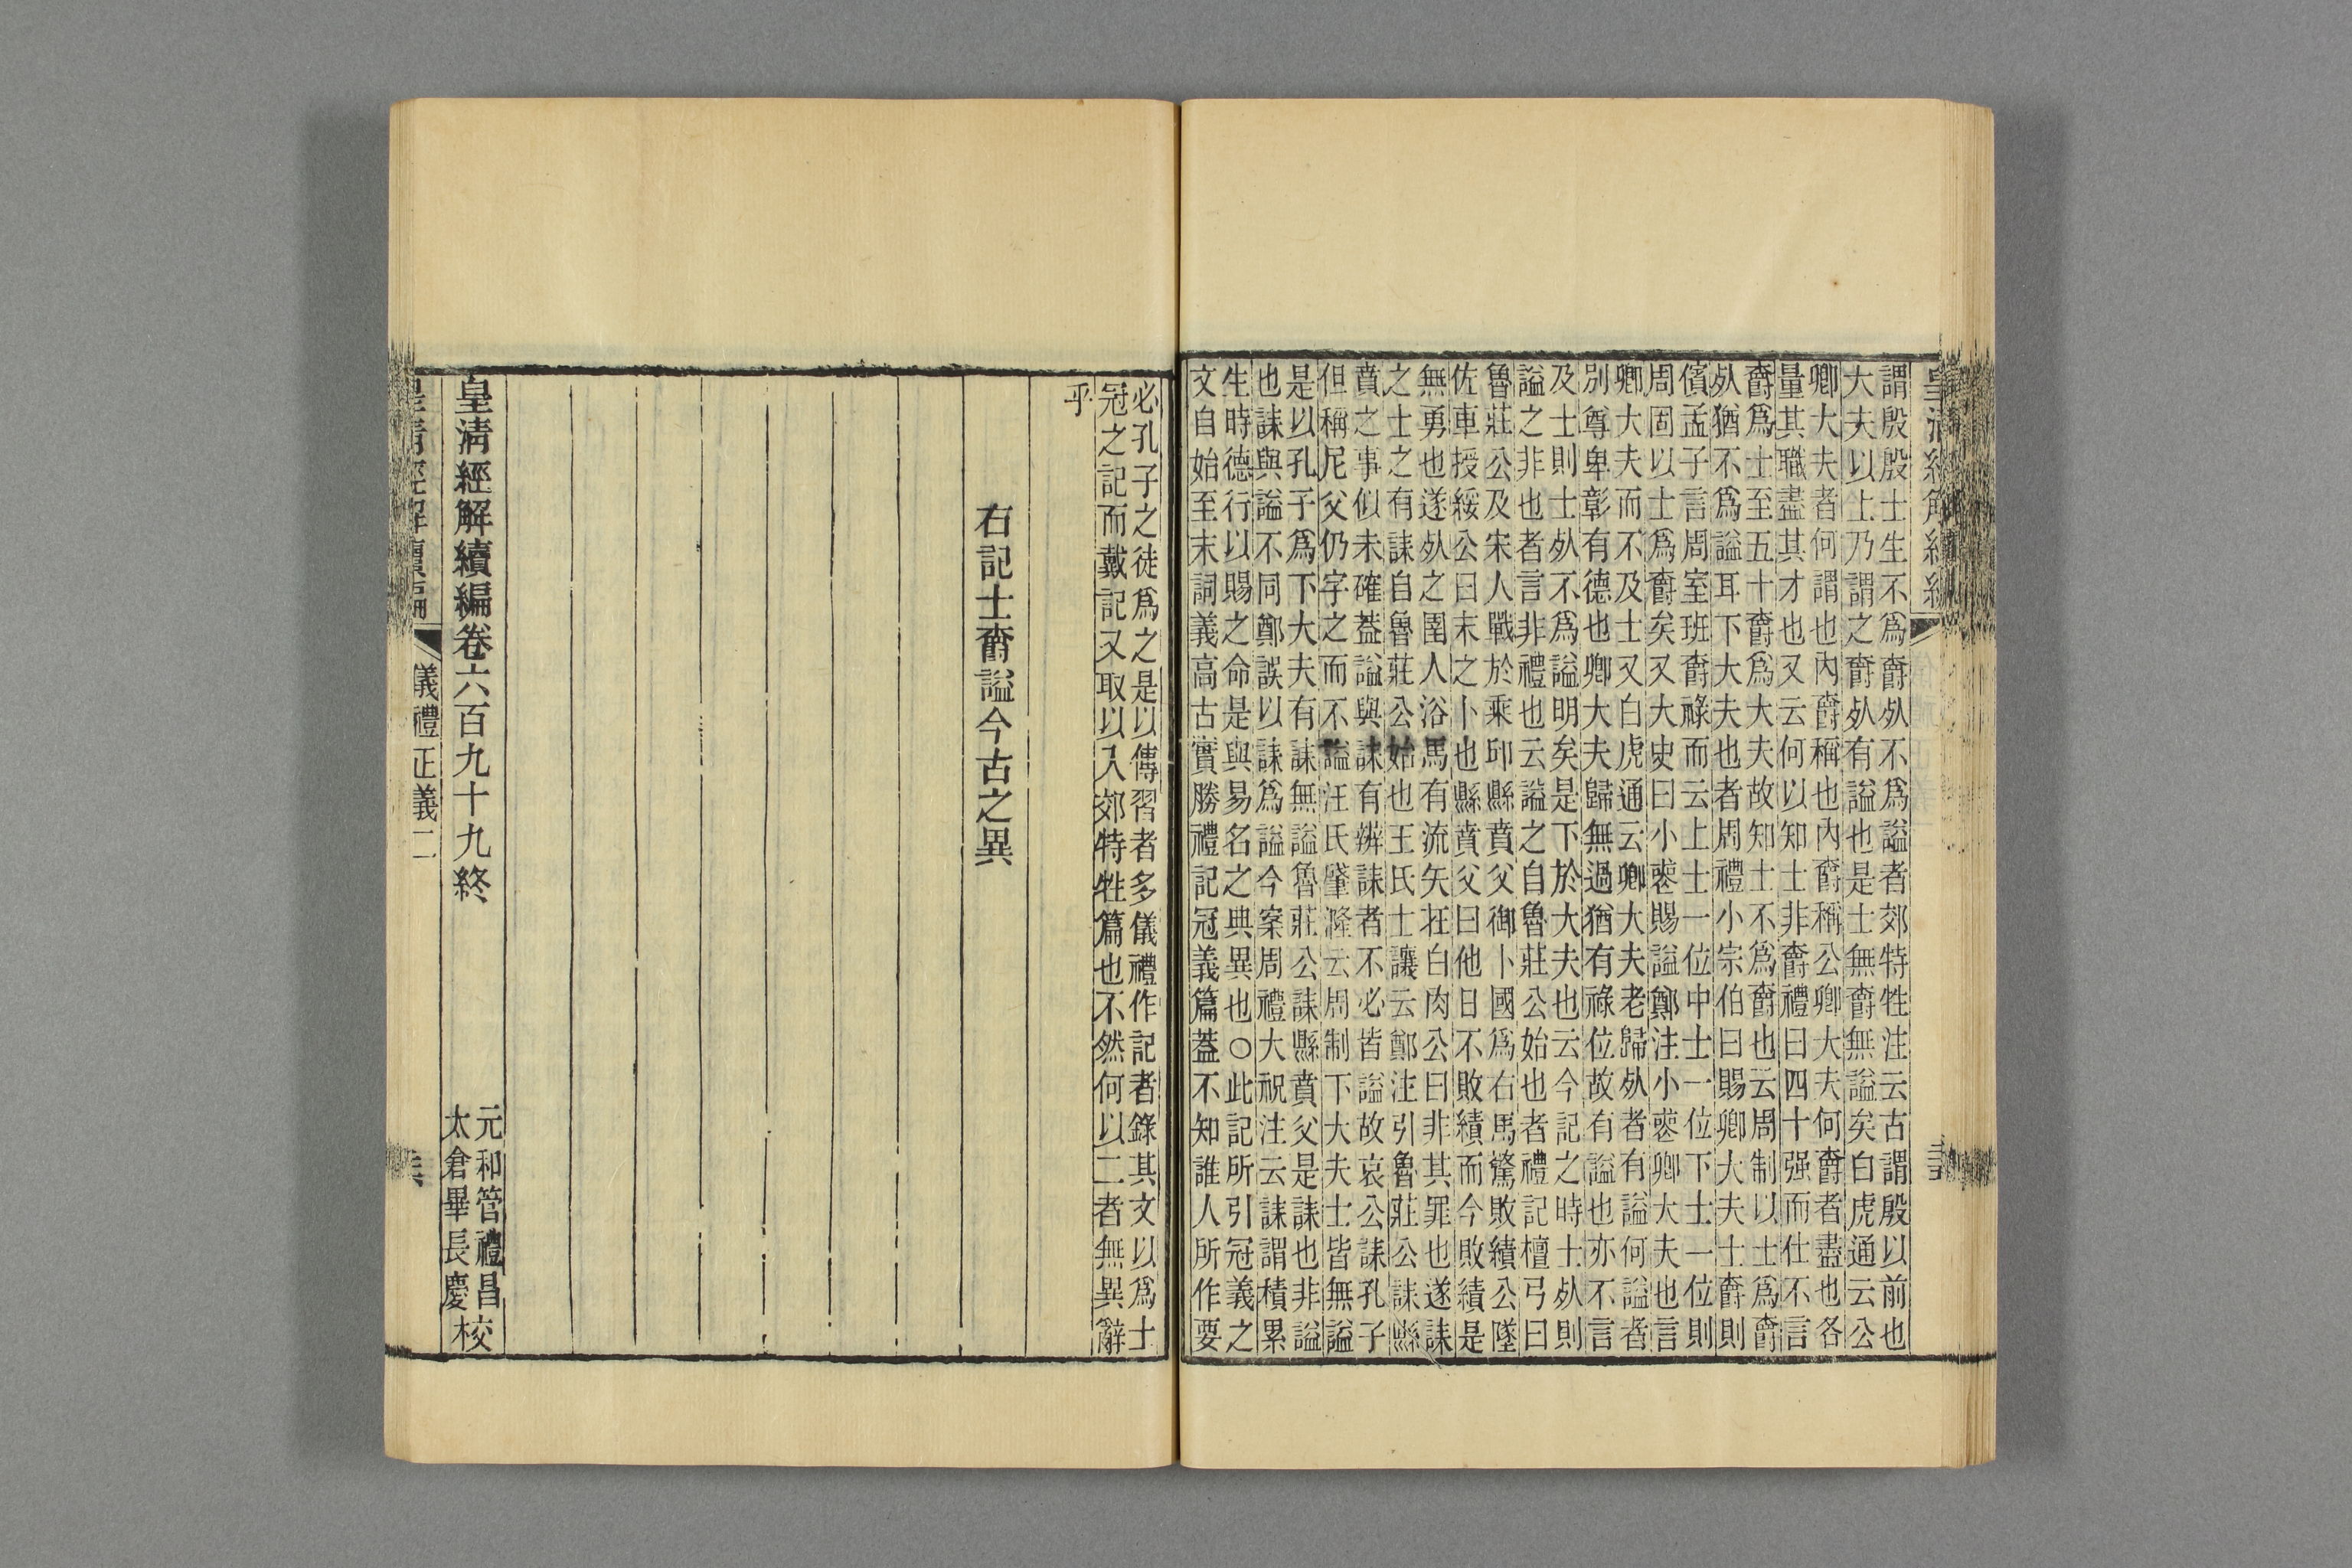 謂殷殷士生不爲爵死不爲謚者郊特牲注云古謂殷以前也
大夫以上乃謂之爵死有謚也是士無爵無謚矣白虎通云公
卿大夫者何謂也內爵稱也內爵稱公卿大夫何爵者盡也各
量其職盡其才也又云何以知士非爵禮曰四十强而仕不言
爵爲士至五十爵爲大夫故知士不爲爵也云周制以士爲爵
死猶不爲謚耳下大夫也者周禮小宗伯曰賜卿大夫士爵則
儐孟子言周室班爵祿而云上士一位中士一位下士一位則
周固以士爲爵矣又大史曰小喪賜謚鄭注小喪卿大夫也言
卿大夫而不及士又白虎通云卿大夫老歸死者有謚何謚者
別尊卑彰有德也卿大夫歸無過猶有祿位故有謚也亦不言
及士則士死不爲謚明矣是下於大夫也云今記之時士死則
謚之非也者言非禮也云謚之自魯莊公始也者禮記檀弓曰
魯莊公及宋人戰於乘邱縣賁父御卜國爲右馬驚敗績公墜
佐車授綏公曰末之卜也縣賁父曰他日不敗績而今敗績是
無勇也遂死之圉人浴馬有流矢在白肉公曰非其罪也遂誄
之士之有誄自魯莊公始也王氏士讓云鄭注引魯莊公誄縣
賁之事似未確蓋謚與誄有辨誄者不必皆謚故哀公誄孔子
但稱尼父仍字之而不謚汪氏肇漋云周制下大夫士皆無謚
是以孔子爲下大夫有誄無謚魯莊公誄縣賁父是誄也非謚
也誄與謚不同鄭誤以誄爲謚今案周禮大祝注云誄謂積累
生時德行以賜之命是與易名之典異也○此記所引冠義之
文自始至末詞義高古實勝禮記冠義篇蓋不知誰人所作要
必孔子之徒爲之是以傳習者多儀禮作記者錄其文以爲士
冠之記而戴記又取以入郊特牲篇也不然何以二者無異辭
乎
右記士爵謚今古之異
皇清經解續編卷六百九十九終
元和管禮昌
太倉畢長慶校
儀禮正義二